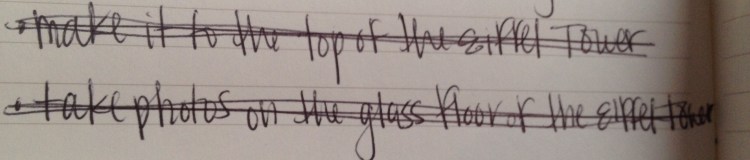 make it to the top of the eiffel Tower
take photos on the glass floor of the eiffel tower